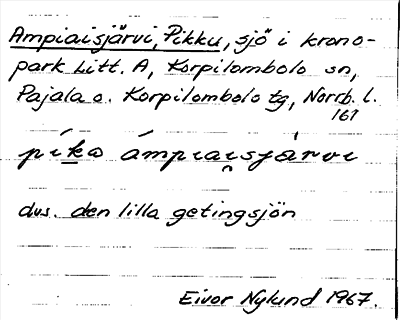 Ampiaisjärvi, Pikku, sjö i krono-
park Litt. A, Korpilombolo sn,
Pajala o. Korpilombolo tg, Norrb. l.
161
píka ámpiai̯sjárvi
dvs. den lilla getingsjön
Eivor Nylund 1967.